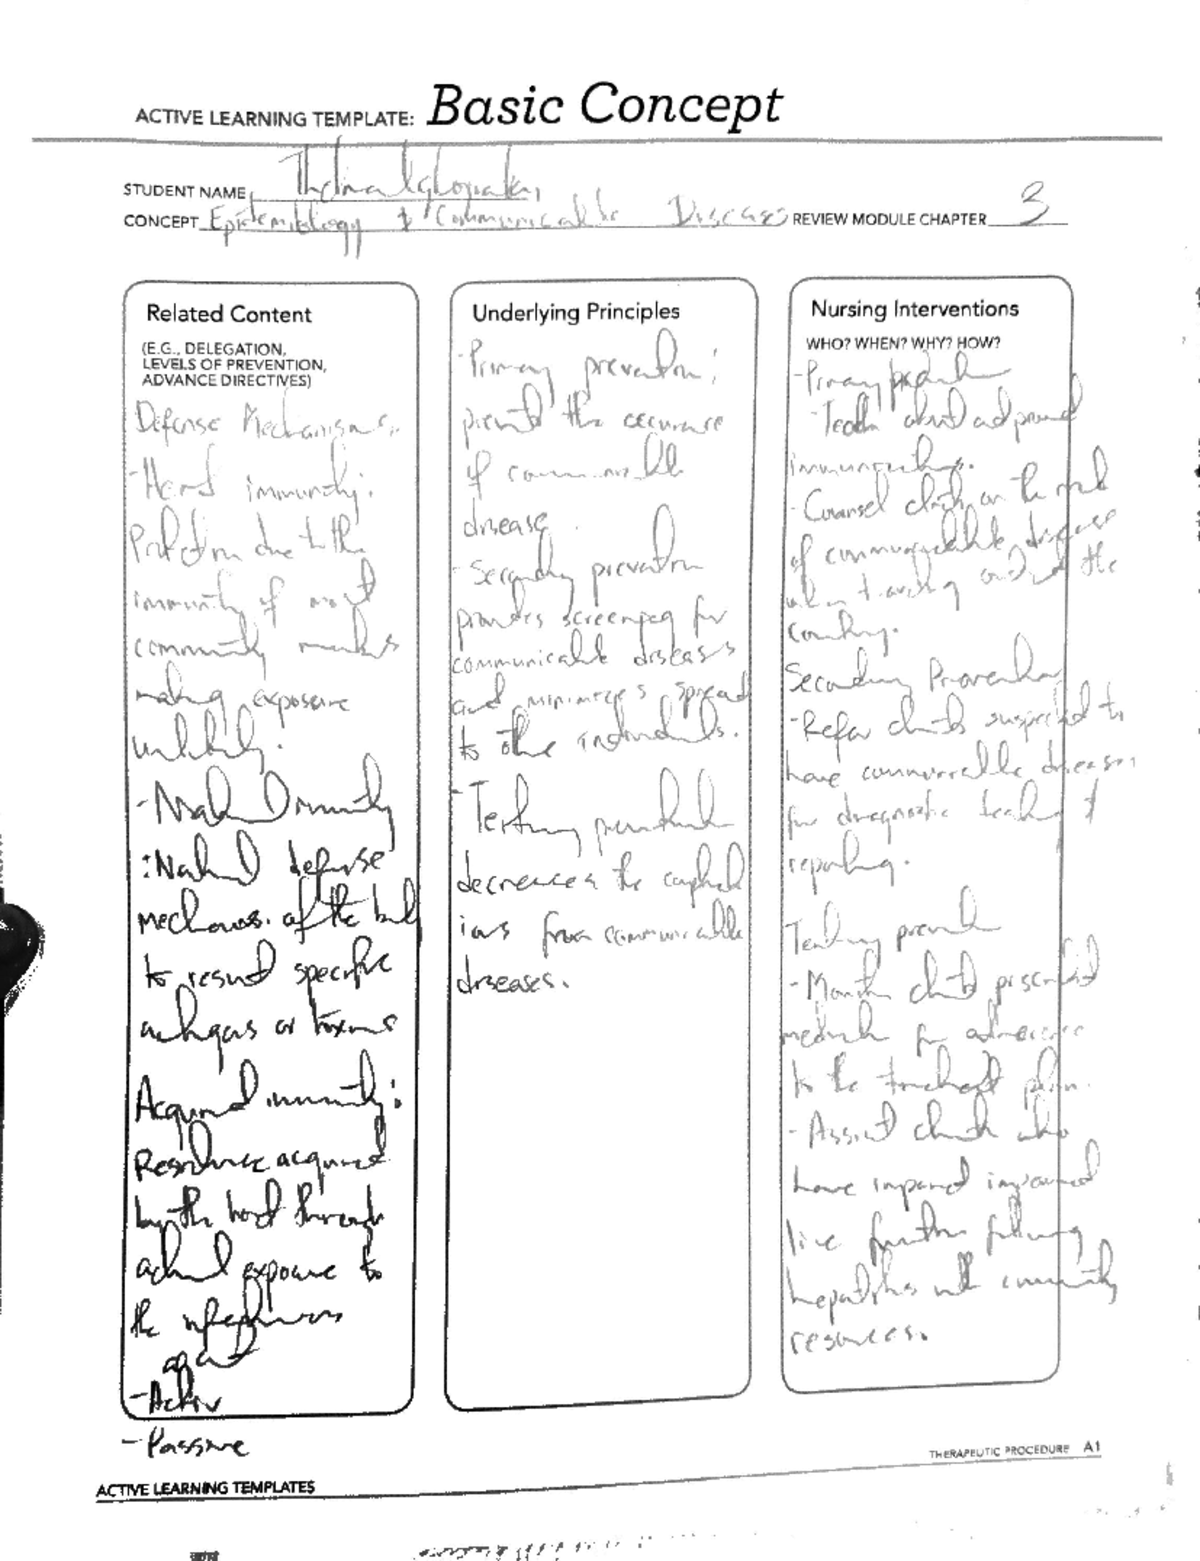 ACTIVE LEARNING TEMPLATE: Basic Concept
STUDENT NAME
CONCEPT Epidemiology & Communicable Diseases REVIEW MODULE CHAPTER 3
Related Content
(E.G., DELEGATION,
LEVELS OF PREVENTION,
ADVANCE DIRECTIVES)
Defense Mechanisms:
-Herd immunity:
Protection due to the
immunity of most
community members
making exposure
unlikely.
- Immunity
:Natural defense
mechanis. of the body
to resist specific
antigens or toxins
Acquired immunity:
Resistance acquired
by the host through
actual exposure to
the infectious
agent
-Activ
-Passive
Underlying Principles
-Primary prevention:
prevents the occurance
of communicable
disease.
-Secondary prevention
provides screening for
communicable diseases
and minimizes spread
to other individuals.
-Tertiary prevention
decreases the complicat
ions from communicable
diseases.
Nursing Interventions
WHO? WHEN? WHY? HOW?
-Primary
-Teach about and
immunizations.
-Counsel clients on the
of communicable disease
when traveling the
country.
Secondary Prevention
-Refer clients suspected to
have communicable diseases
for diagnostic testing &
reporting.
Tertiary
- clients prescribed
for adherence
to the treatment plan.
-Assist clients who
have impaired
live function following
hepatitis with community
resources.
THERAPEUTIC PROCEDURE A1
ACTIVE LEARNING TEMPLATES